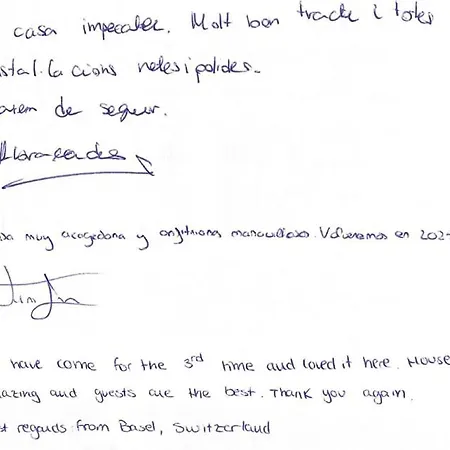 casa impecable. Molt bon tracte i totes
stal·lacions netes i polides.
de segur.
muy acogedora y anfitriona maravillosa. Volveremos en 202
have come for the 3rd time and loved it here. House
azing and guests are the best. Thank you again.
t regards from Basel, Switzerland